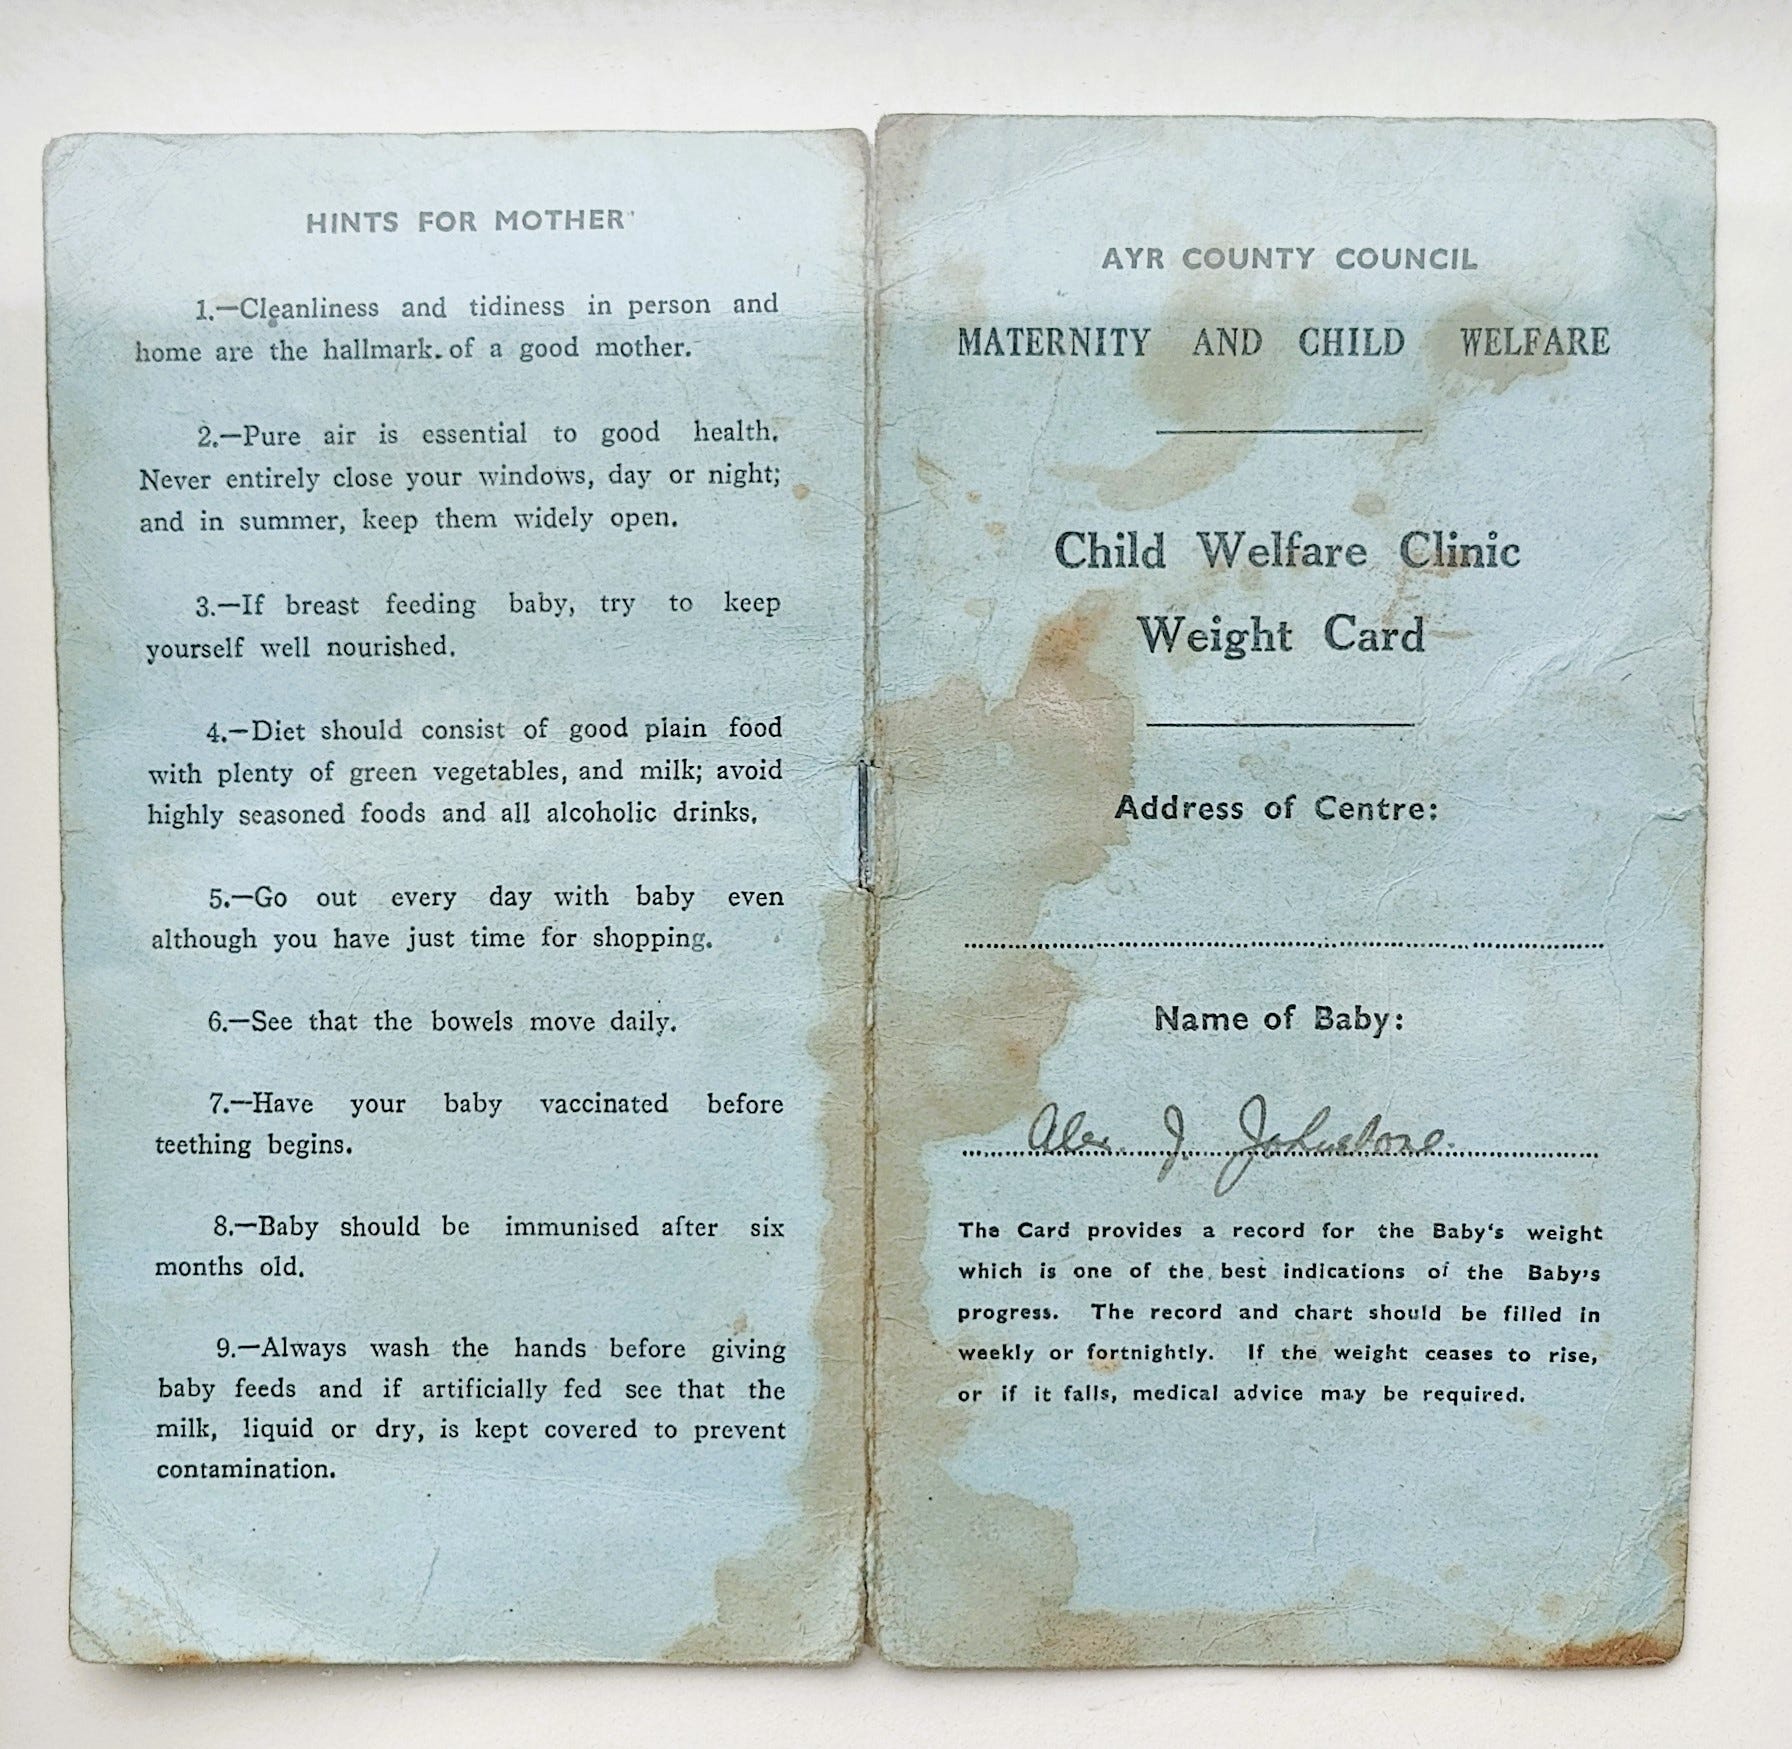 HINTS FOR MOTHER
1.—Cleanliness and tidiness in person and
home are the hallmark of a good mother.
2.—Pure air is essential to good health.
Never entirely close your windows, day or night;
and in summer, keep them widely open.
3.—If breast feeding baby, try to keep
yourself well nourished.
4.—Diet should consist of good plain food
with plenty of green vegetables, and milk; avoid
highly seasoned foods and all alcoholic drinks.
5.—Go out every day with baby even
although you have just time for shopping.
6.—See that the bowels move daily.
7.—Have your baby vaccinated before
teething begins.
8.—Baby should be immunised after six
months old.
9.—Always wash the hands before giving
baby feeds and if artificially fed see that the
milk, liquid or dry, is kept covered to prevent
contamination.
AYR COUNTY COUNCIL
MATERNITY AND CHILD WELFARE
Child Welfare Clinic
Weight Card
Address of Centre:
Name of Baby:
Alex. J. Johnstone.
The Card provides a record for the Baby's weight
which is one of the best indications of the Baby's
progress. The record and chart should be filled in
weekly or fortnightly. If the weight ceases to rise,
or if it falls, medical advice may be required.